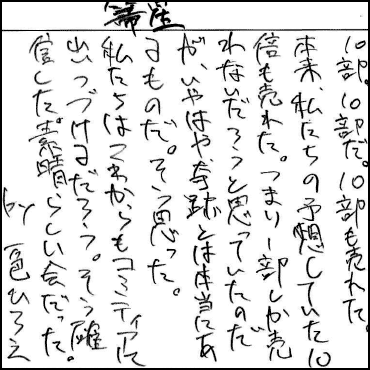 10部。10部だ。10部も売れた。
本来、私たちの予想していた10
倍も売れた。つまり1部しか売
れないだろうと思っていたのだ
が、いやはや奇跡とは本当にあ
るものだ。そう思った。
私たちはこれからもコミティアに
出つづけるだろう。そう確
信した。素晴らしい会だった。
by